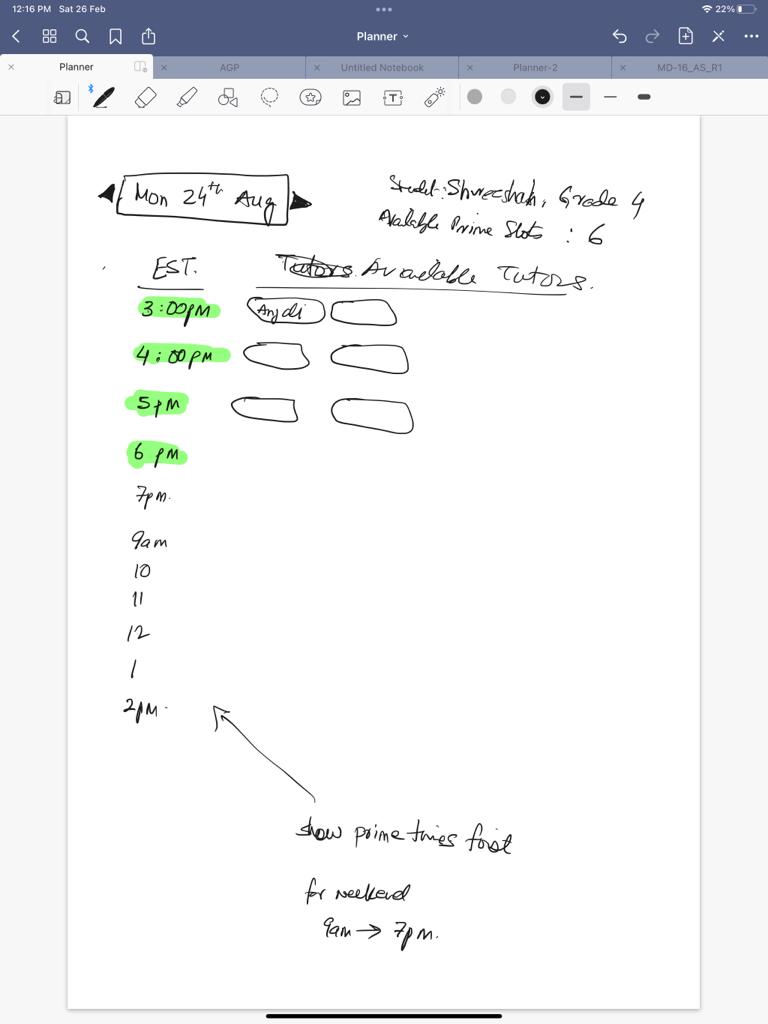 12:16 PM Sat 26 Feb
22%
Planner
Planner
AGP
Untitled Notebook
Planner-2
MD-16_AS_R1
Mon 24th Aug
Student: Shreeshah, Grade 4
Available Prime Slots : 6
EST.
Tutors. Available Tutors.
3:00PM Anjali
4:00PM
5PM
6 PM
7pm.
9am
10
11
12
1
2PM.
show prime times first
for weekend
9am → 7pm.